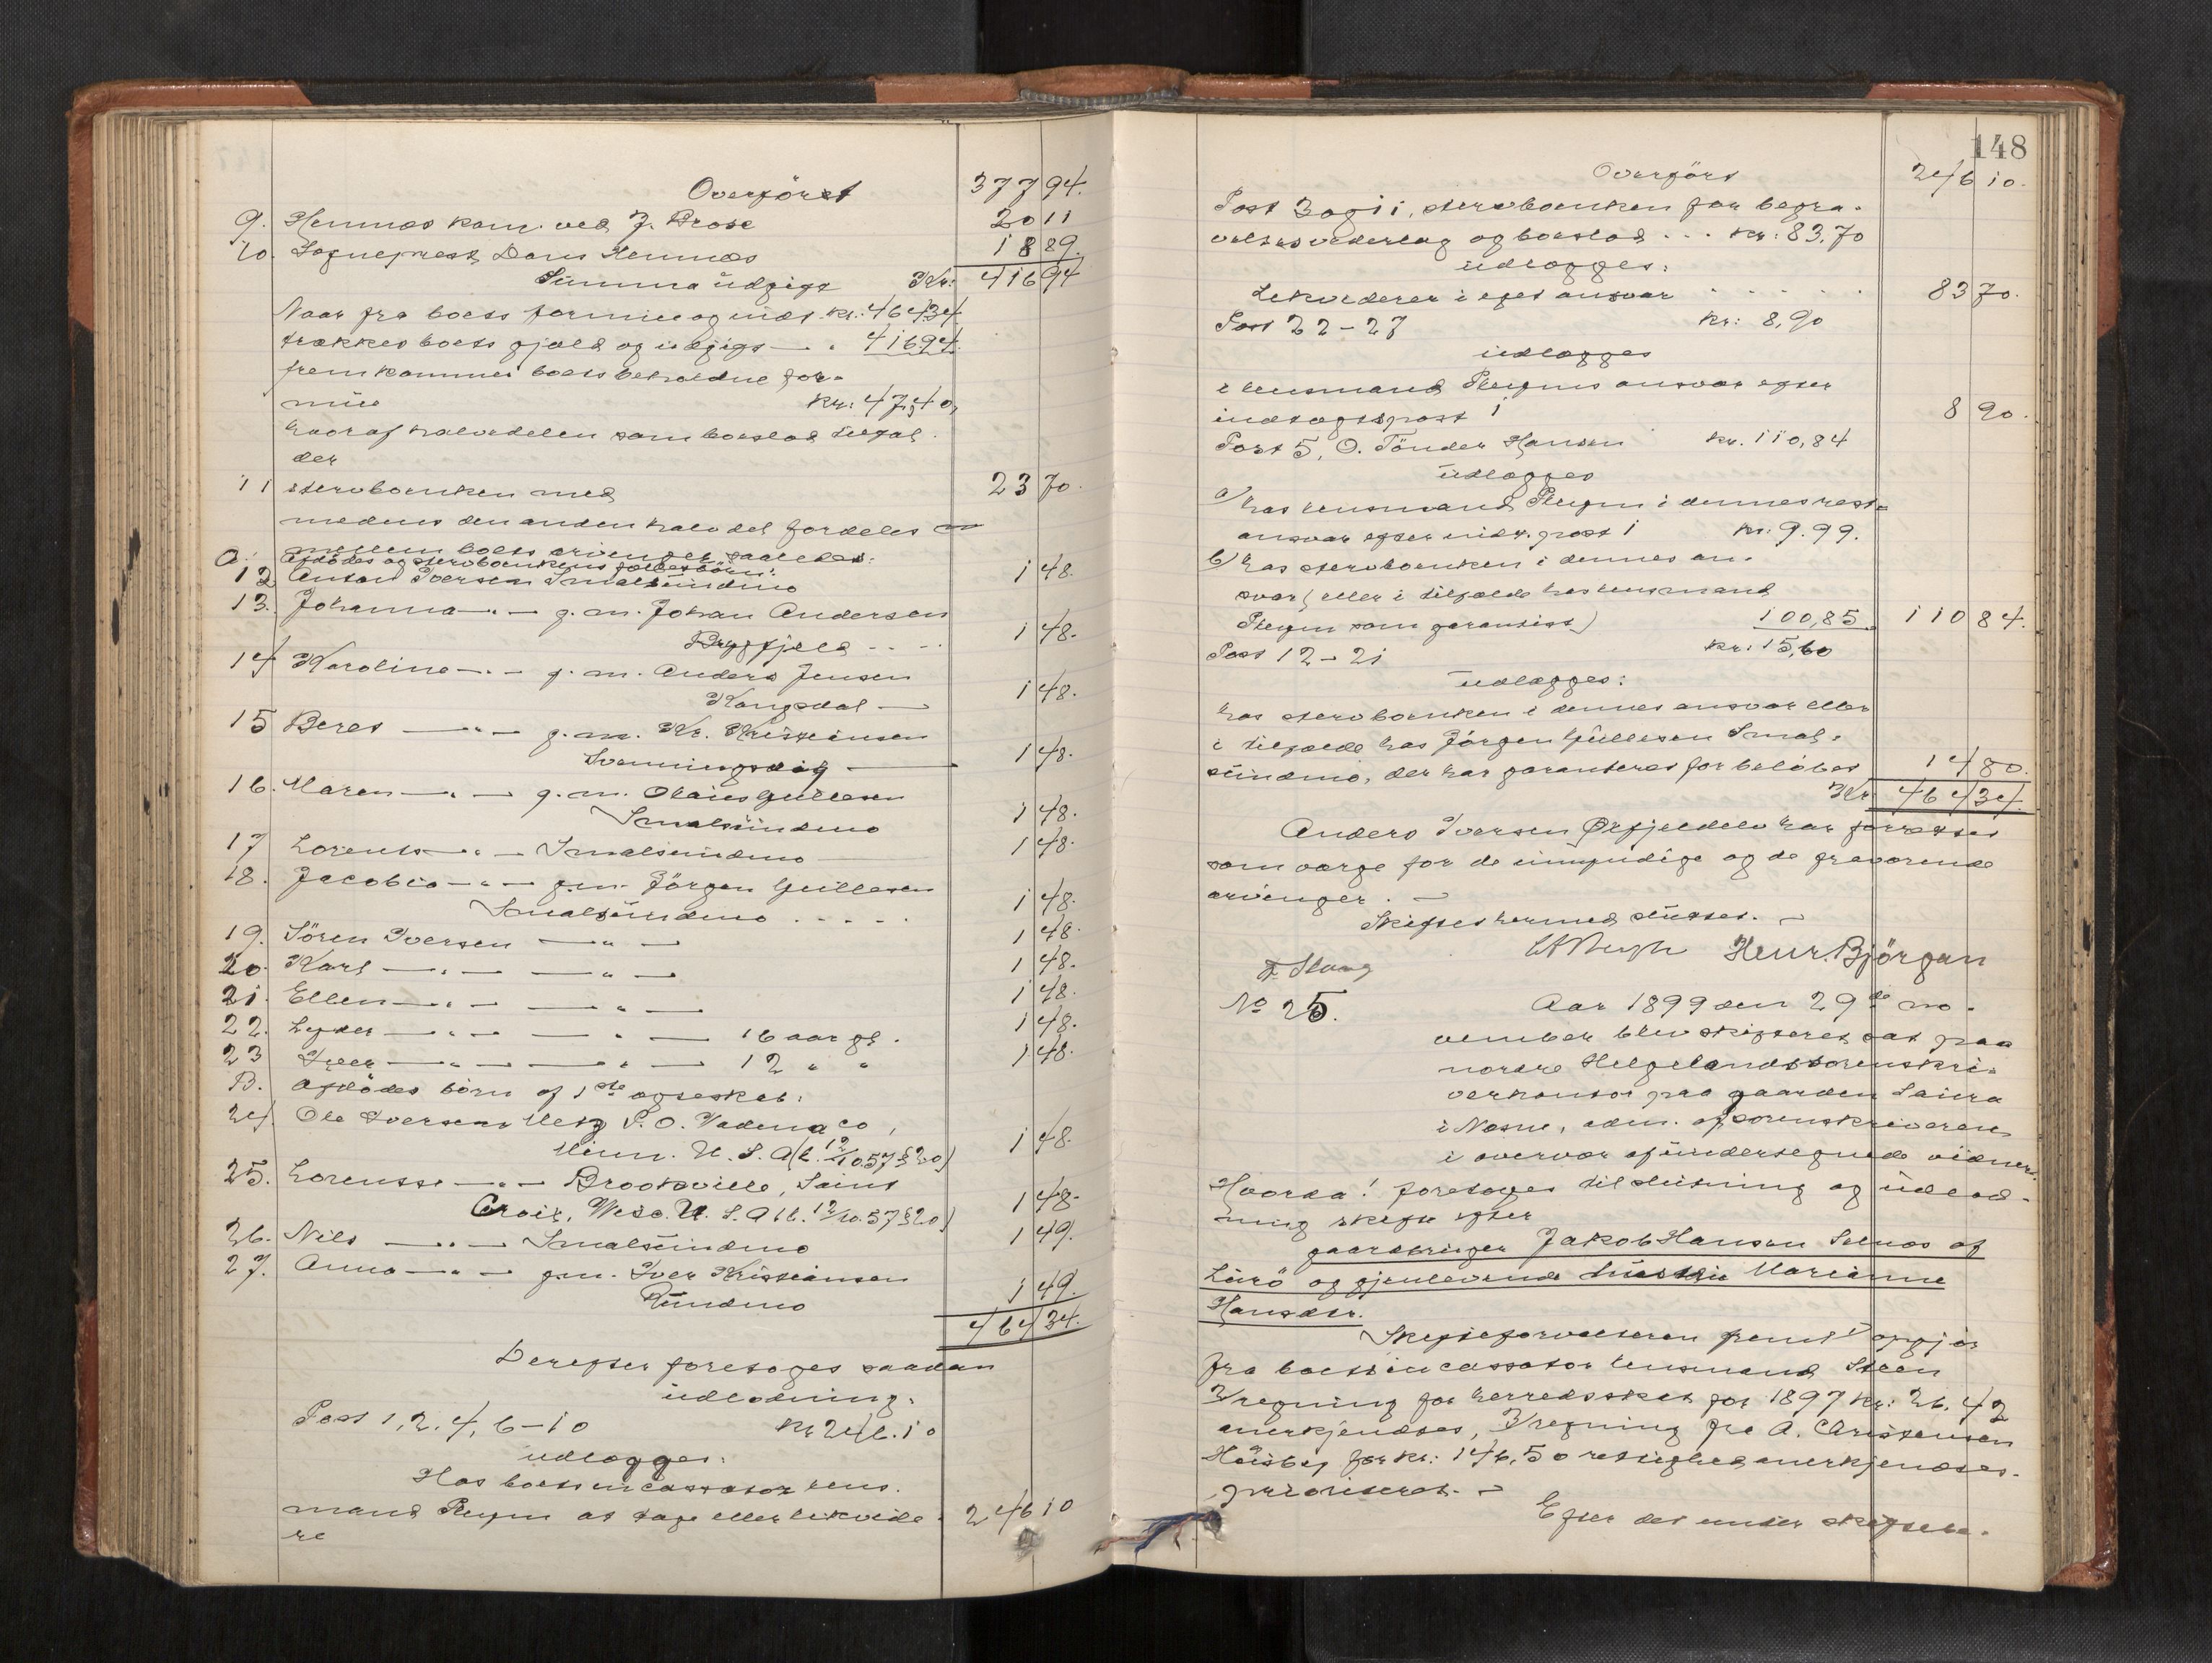 Overført 377 94.
9. Hemnes kom. ved J. Brose 20 11
10. Sogneprest Dans Hemnes 18 89.
Summa udgift Kr: 416 94
Naar fra boets formue og indt. kr: 464,34
trækkes boets gjæld og udgift — " 416.94.
fremkommer boets beholdne for-
mue kr: 47,40,
hvoraf halvdelen som boeslod tilfal-
der
11 sterboenken med 23 70.
medens den anden halvdel fordeles
mellem boets arvinger saaledes:
A. Afdødes og sterboenkens fællesbørn:
12 Anton Iversen Smalsundmo 1 48.
13. Johanna —"— g. m. Johan Andersen
Bryggfjeld - - - 1 48.
14 Karoline —"— g. m. Anders Jensen
Kangsdal — 1 48.
15 Beret —"— g. m. Kr. Kristiansen
Svenningsdag — 1 48.
16. Maren —"— g. m. Olaius Gullesen
Smalsundmo 1 48.
17 Lorents —"— Smalsundmo 1 48.
18. Jacobia —"— g.m. Jörgen Gullesen
Smalsundmo . - - - . 1 48.
19. Sören Iversen —"— 1 48.
20. Karl —"— —"— 1 48.
21. Ellen —"— —"— 1 48.
22. Lyder —"— —"— 16 aar gl. 1 48.
23 Iver —"— —"— 12 " " 1 48.
B. Afdödes börn af 1ste ægteskab:
24 Ole Iversen Metz P.O. Vadena co,
Minn. U. S. A (l. 12/10.57 § 20) 1 48.
25. Lorentse —"— Brooksville, Saint
Croix, Wisc. U. S. A (l. 12/10.57 § 20) 1 48.
26. Nils —"— Smalsundmo 1 49.
27. Anna —"— g.m. Iver Kristiansen
Rundmo 1 49.
464 34.
Derefter foretoges saadan
udlodning:
Post 1, 2, 4, 6–10 Kr 246.10
udlægges:
Hos boets incassator lens-
mand Plugm at tage eller likvide- 246 10
re
148
Overført 246 10.
Post 3 og 11, sterboenken for begra-
velsesvederlag og boeslod . . . kr: 83,70
udlægges:
Likviderer i eget ansvar - - - - - 83 70.
Post 22 – 27 kr: 8,90
udlægges
i lensmand Plugms ansvar efter
indtægtspost 1 8 90.
Post 5, O. Tönder Hansen kr. 110,84
udlægges
a) hos lensmand Plugm i dennes rest-
ansvar efter indt. post 1 kr. 9.99.
b) hos sterboenken i dennes an-
svar (eller i tilfælde hos lensmand
Plugm som garantist) 100,85. 110 84.
Post 12 – 21 kr: 15,60
udlægges:
hos sterboenken i dennes ansvar eller
i tilfælde hos Jörgen Gullesen Smal-
sundmo, der har garanteret for belöbet 14 80.
Kr 464 34.
Anders Iversen Örfjeldelv har forrettet
som værge for de umyndige og de fraværende
arvinger. —
Skiftet hermed sluttet. —
Henr. Björgan
No 25. Aar 1899 den 29de no-
vember blev skifteret sat paa
nordre Helgelands sorenskri-
verkontor paa gaarden Laura
i Nesne, adm. af sorenskriveren
i overvær af undertegnede vidner.
Hvorda! foretoges til slutning og udlod-
ning skifte efter
gaardbruger Jakob Hansen Selnes af
Lurö og gjenlevende hustru Marianne
Hansdtr.
Skifteforvalteren freml 1) opgjör
fra boets incassator lensmand Steen
2) regning for herredsskat for 1897 kr: 26,42
anerkjendtes, 3) regning fra A. Christensen
Husby for kr: 146,50 rettighed anerkjendtes.
prioriteret. —
Efter det under skiftebe-